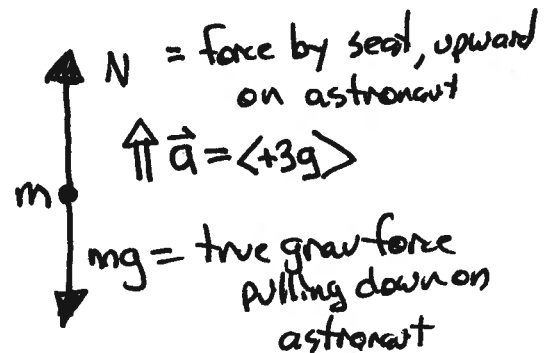 N = force by seat, upward
on astronaut
a⃗ = <+3g>
m
mg = true grav force
pulling down on
astronaut